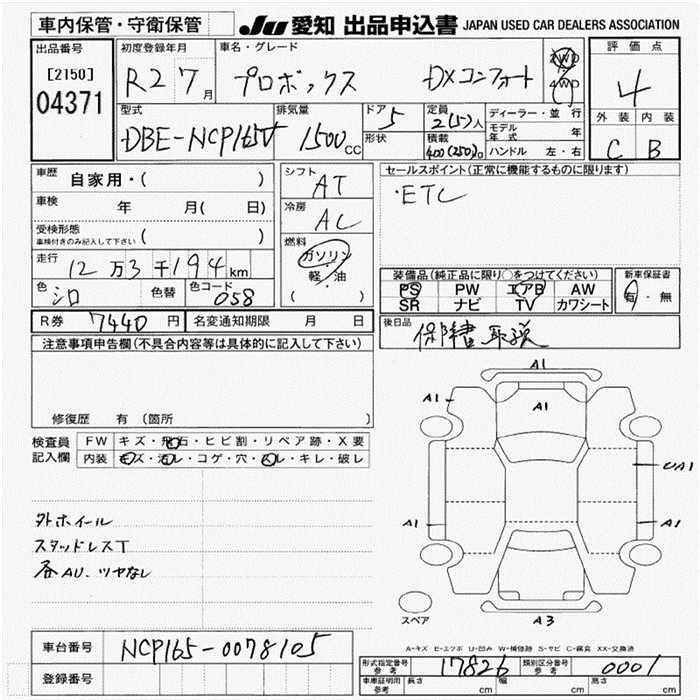 車内保管・守衛保管 JU 愛知 出品申込書 JAPAN USED CAR DEALERS ASSOCIATION
出品番号 初度登録年月 車名・グレード 評価点
[2150] R2 7月 プロボックス DXコンフォート 2WD 4WD 4
04371
型式 排気量 ドア 5 定員 2(5)人 ディーラー・並行 外装 内装
DBE-NCP165V 1500cc 形状 積載 400(250)kg モデル年式 年 C B
ハンドル 左・右
車歴 自家用・( ) シフト AT セールスポイント(正常に機能するものに限ります)
車検 年 月( 日) 冷房 AC ・ETC
受検形態 車検付きのみ記入して下さい ( ) 燃料 ガソリン
走行 12万3千194km 軽・油 装備品(純正品に限り○をつけてください) 新車保証書
色 シロ 色替 色コード 058 ( ) PS PW エアB AW 有・無
SR ナビ TV カワシート
R券 7440円 名変通知期限 月 日 後日品 保障書 取説
注意事項申告欄(不具合内容等は具体的に記入して下さい)
修復歴 有 (箇所
検査員 FW キズ・飛石・ヒビ割・リペア跡・X要
記入欄 内装 キズ・汚レ・コゲ・穴・スレ・キレ・破レ
A1
A1 A1 A1
UA1
A1 A1
外ホイール
スタッドレスT
各AU、ツヤなし
スペア A3
A-キズ E-エクボ U-凹み W-補修跡 S-サビ C-腐食 XX-交換済
車台番号 NCP165-0078105
登録番号
形式指定番号 参考 17826 類別区分番号 参考 0001
車庫証明用 参考 長さ cm 幅 cm 高さ cm